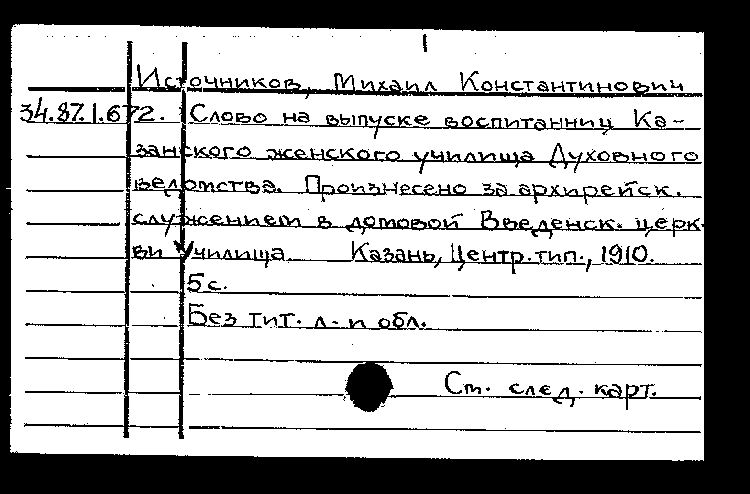 Источников, Михаил Константинович
34.87.1.672. Слово на выпуске воспитанниц Ка-
занского женского училища Духовного
ведомства. Произнесено за архирейск.
служением в домовой Введенск. церк-
ви училища. Казань, Центр. тип., 1910.
5 с.
Без тит. л. и обл.
См. след. карт.